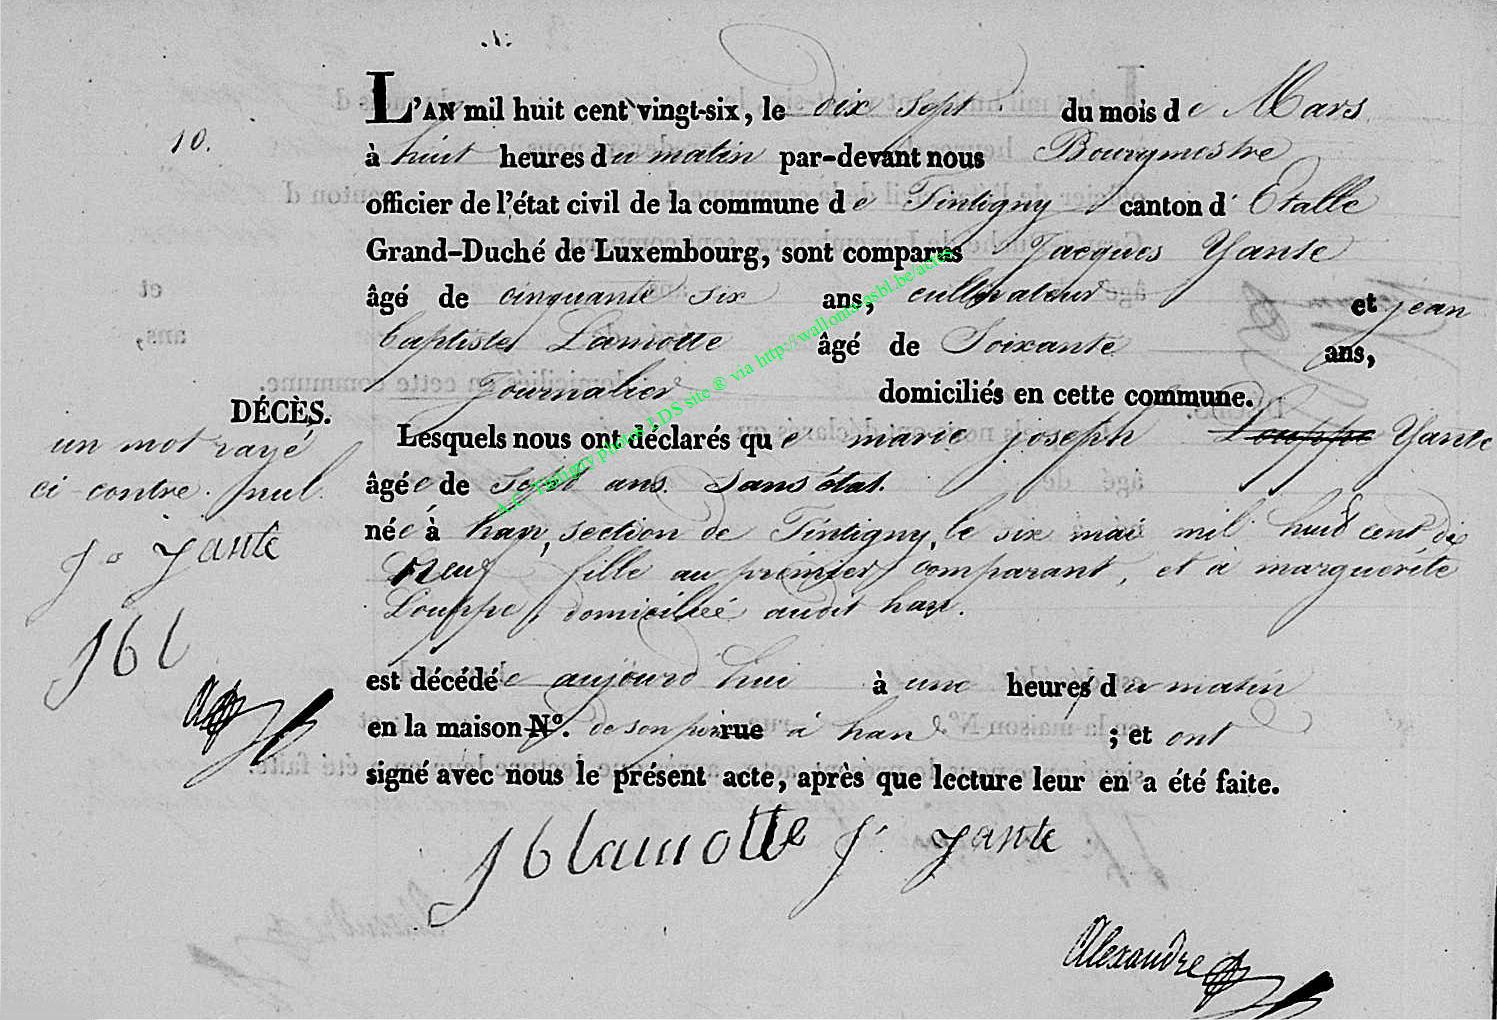 10.
L'AN mil huit cent vingt-six, le dix sept du mois de Mars
à huit heures du matin par-devant nous Bourgmestre
officier de l'état civil de la commune de Tintigny canton d' Etalle
Grand-Duché de Luxembourg, sont comparus Jacques Yante
âgé de cinquante six ans, cultivateur et jean
baptiste Lamotte âgé de Soixante ans,
Journalier domiciliés en cette commune.
DÉCÈS.
un mot rayé
ci contre nul.
J. Yante
JbL
Lesquels nous ont déclarés que marie joseph Louppe Yante
âgée de sept ans. Sans état.
née à han, section de Tintigny, le six mai mil huit cent dix
Neuf fille au prémier comparant, et à marguerite
Louppe, domiciliée audit han.
est décédée aujourd'hui à une heures du matin
en la maison N°. de son père rue à han ; et ont
signé avec nous le présent acte, après que lecture leur en a été faite.
Jblamotte J. Yante
Alexandre
A.C. Tintigny photos LDS site ® via http://wallonia.asbl.be/actes